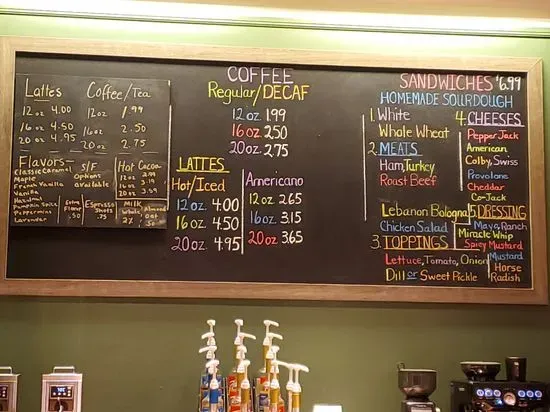 Lattes
12 oz 4.00
16 oz 4.50
20 oz 4.95
Coffee/Tea
12 oz 1.99
16 oz 2.50
20 oz 2.75
Flavors—
Classic Caramel
Maple
French Vanilla
Vanilla
Hazelnut
Pumpkin Spice
Peppermint
Lavender
S/F
options
available
Hot Cocoa
12 oz
16 oz
20 oz
Extra
Flavor
.50
Espresso
Shots
.75
Milk
Whole
2%
Almond
Oat
COFFEE
Regular/DECAF
12 oz 1.99
16 oz 2.50
20 oz 2.75
LATTES
Hot/Iced
12 oz 4.00
16 oz 4.50
20 oz 4.95
Americano
12 oz 2.65
16 oz 3.15
20 oz 3.65
SANDWICHES $6.99
HOMEMADE SOURDOUGH
1. White
Whole Wheat
2. MEATS
Ham, Turkey
Roast Beef
Lebanon Bologna
Chicken Salad
3. TOPPINGS
Lettuce, Tomato, Onion
Dill or Sweet Pickle
4. CHEESES
Pepper Jack
American
Colby, Swiss
Provolone
Cheddar
Co-Jack
5. DRESSING
Mayo, Ranch
Miracle Whip
Spicy Mustard
Mustard
Horse
Radish